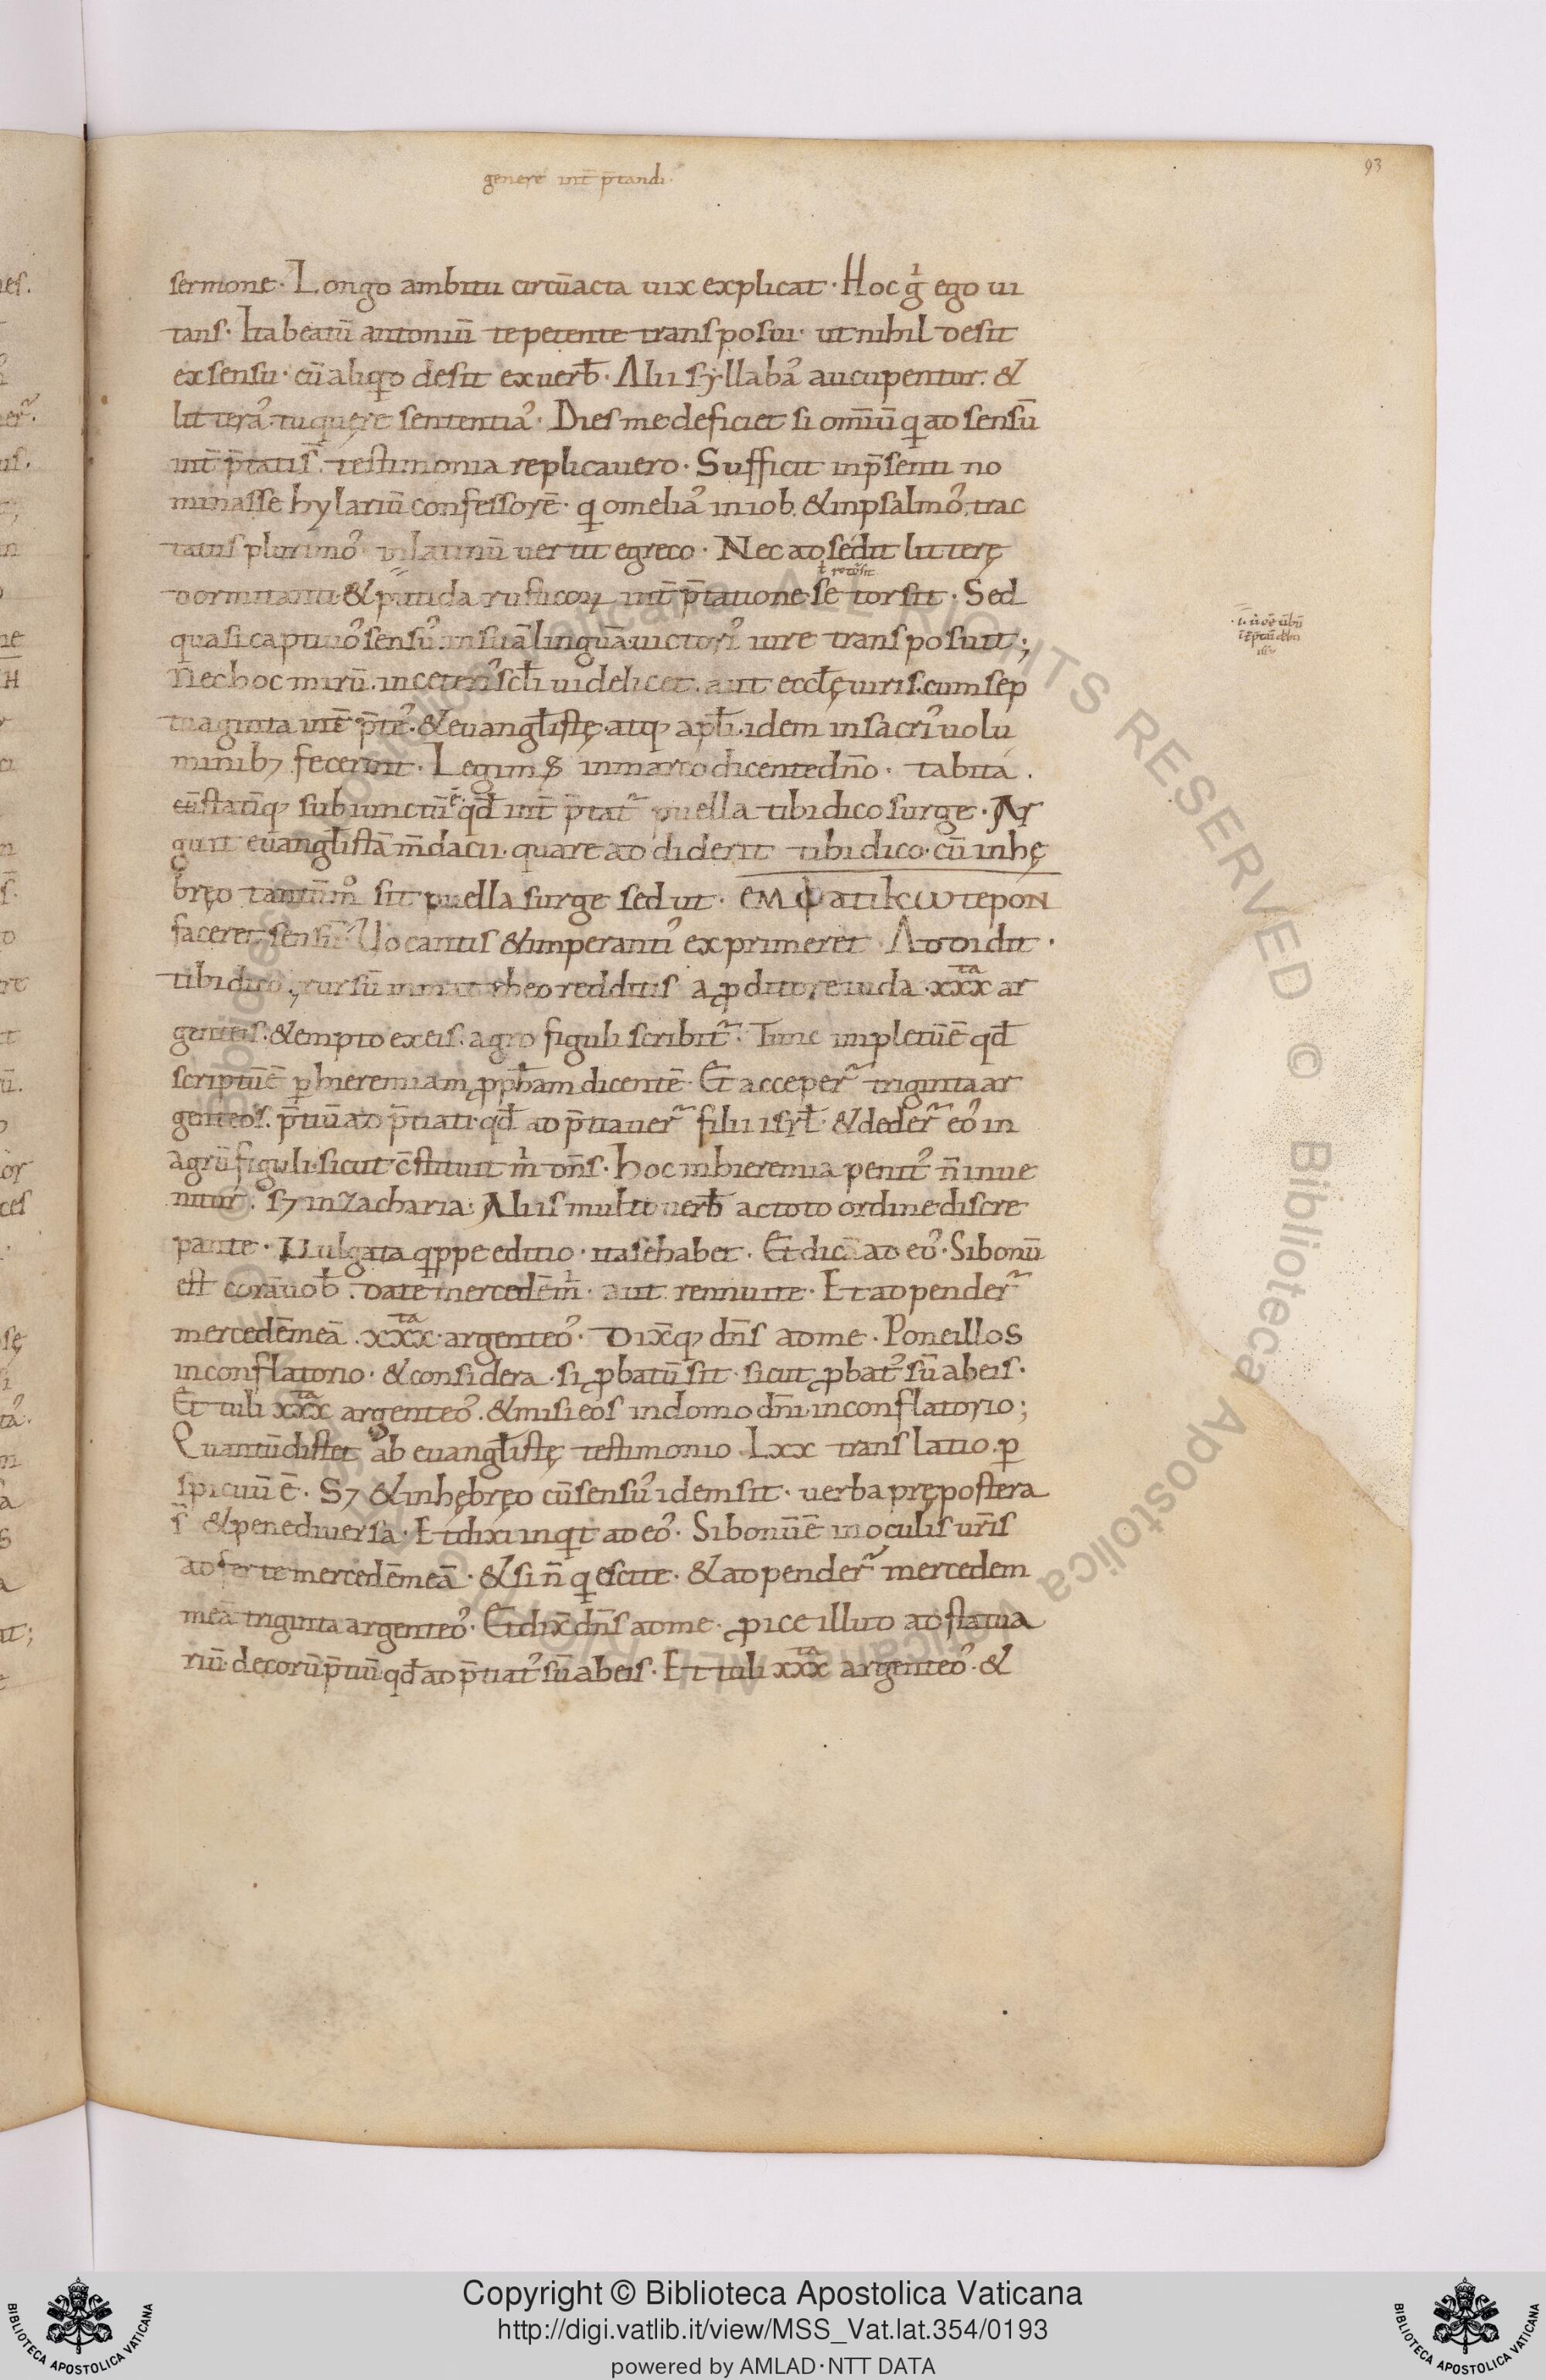 genere int̄ p̄tandi.
93
sermone. Longo ambitu circūacta uix explicat. Hoc g̍ ego ui
tans. Ita beatū antoniū te petente transposui. ut nihil desit
ex sensu. cū aliqͥd desit ex uerb̄. Alii syllabaʼ aucupentur. &
litteraʼ. tu quęre sententiaʼ. Dies me deficiet si om̄iū qͥ ad sensū
int̄ p̄tati s̄. testimonia replicauero. Sufficit in p̄senti no
minasse hylariū confessorē. qͥ omeliaʼ in iob. & in psalmoʼ. trac
tatus plurimoʼ in latinū uertit e greco. Nec adsedit litterę
dormitanti. & putida rusticoꝝ int̄ p̄tatione se torsit. Sed
quasi captiuoʼ sensuʼ. in suā linguā. uictoriʼ iure transposuit;
Nec hoc mirū. in ceteriʼ scl̄i uidelicet. aut eccl̄ę uiris. cum sep
tuaginta int̄ p̄teʼ. & euangl̄istę. atqꝫ apl̄i. idem in sacriʼ uolu
minibꝫ fecerint. Legimꝰ in marco dicente dn̄o. tabita.
cū statīqꝫ subiunctū ē. qd̄ int̄ p̄tat᷑ puella tibi dico surge. Ar
guit euangl̄istā m̄dacii. quare addiderit tibi dico. cū in hę
bręo tantūmͦ sit puella surge sed ut. ΕΜΦατικωτεροΝ
faceret sensū. Uocantis & imperantiʼ exprimeret. Addidit.
tibi dico. rursū in matheo redditis a ꝓditore iuda. xxx ta ar
genteis. & empto ex eis. agro figuli scribit᷑. Tunc impletū ē qd̄
scriptū ē ꝑ hieremiam ꝓph̄am dicentē. Et acceper᷑ triginta ar
genteos. p̄tiū ad p̄tiati. qd̄ ad p̄tiauer᷑ filii isrl̄. & deder᷑ eoʼ in
agrū figuli. sicut c̄stituit m̍ dn̄s. Hoc in hieremia penitʼ n̄ inue
nitur. sꝫ in zacharia. Aliis multo uerb̄ ac toto ordine discre
pante. Uulgata qͥppe editio. ita se habet. Et dicā ad eoʼ. Si bonū
est corā uob̄. date mercedē m̍. aut rennuite. Et adpender᷑
mercedē meā. xxx ta. argenteoʼ. Dix̄qꝫ dn̄s ad me. Pone illos
in conflatorio. & considera. si ꝓbatū sit. sicut ꝓbatʼ sū ab eis.
Et tuli xxx ta argenteoʼ. & misi eos in domo dn̄i in conflatorio;
Quantū distet ab euangl̄istę testimonio. Lxx translatio. ꝑ
spicuū ē. Sꝫ & in hębręo cū sensuʼ idem sit. uerba prępostera
s̄ & pene diuersa. Et dixi inqͥt ad eoʼ. Si bonū ē in oculis ur̄is
adferte mercedē meā. & si n̄ qͥescite. & adpender᷑ mercedem
meā triginta argenteoʼ. Et dix̄ dn̄s ad me. ꝓice illud ad statua
riū. decorū p̄tiū qd̄ ad p̄tiatʼ sū ab eis. Et tuli xxx ta argenteoʼ. &
Copyright © Biblioteca Apostolica Vaticana
http://digi.vatlib.it/view/MSS_Vat.lat.354/0193
powered by AMLAD·NTT DATA
BIBLIOTECA APOSTOLICA VATICANA
BIBLIOTECA APOSTOLICA VATICANA